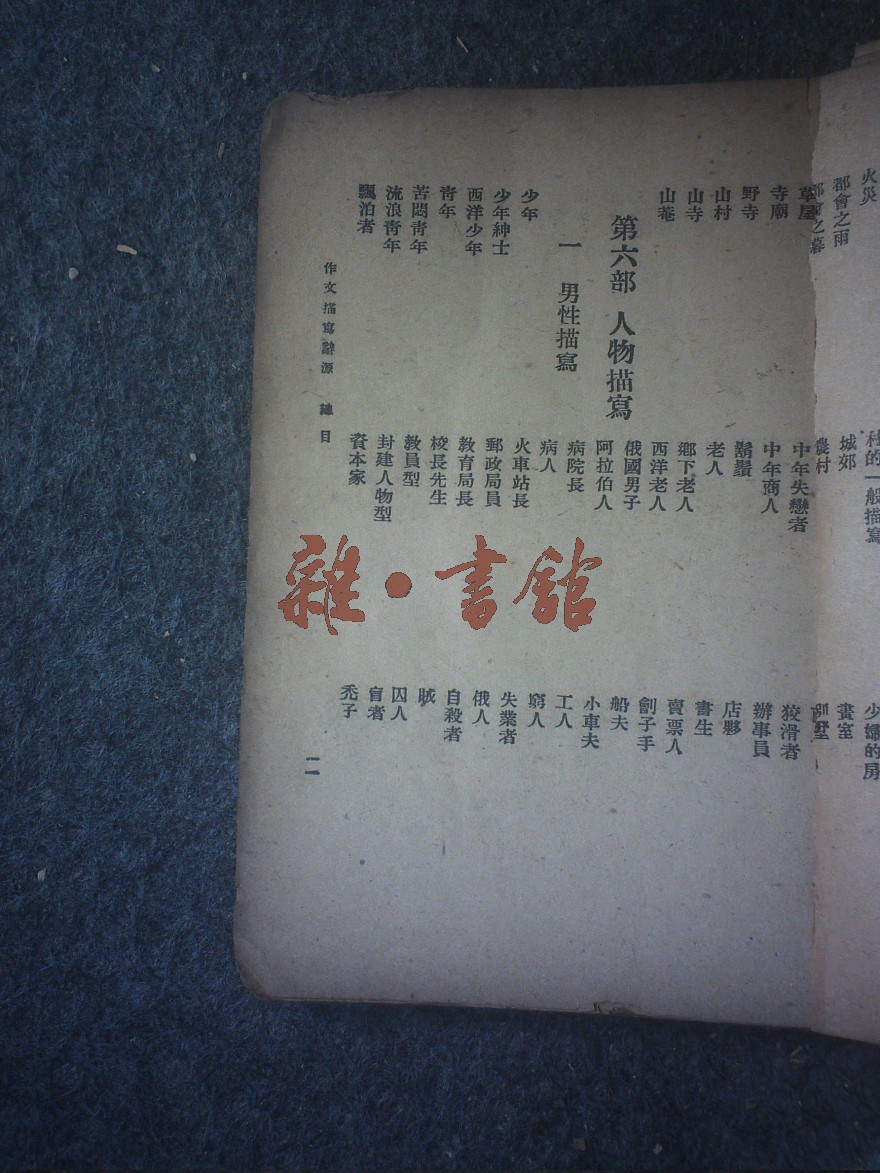 火災
都會之雨
都會之暮
草屋
寺廟
野寺
山村
山寺
山菴
第六部 人物描寫
一 男性描寫
少年
少年紳士
西洋少年
青年
苦悶青年
流浪青年
飄泊者
村的一般描寫
城郊
農村
中年失戀者
中年商人
鬍鬚
老人
鄉下老人
西洋老人
俄國男子
阿拉伯人
病院長
病人
火車站長
郵政局員
教育局長
校長先生
教員型
封建人物型
資本家
少婦的房
畫室
狡滑者
辦事員
店夥
書生
賣票人
劊子手
船夫
小車夫
工人
窮人
失業者
俄人
自殺者
賊
囚人
盲者
禿子
作文描寫辭源 總目
二
雜·書館